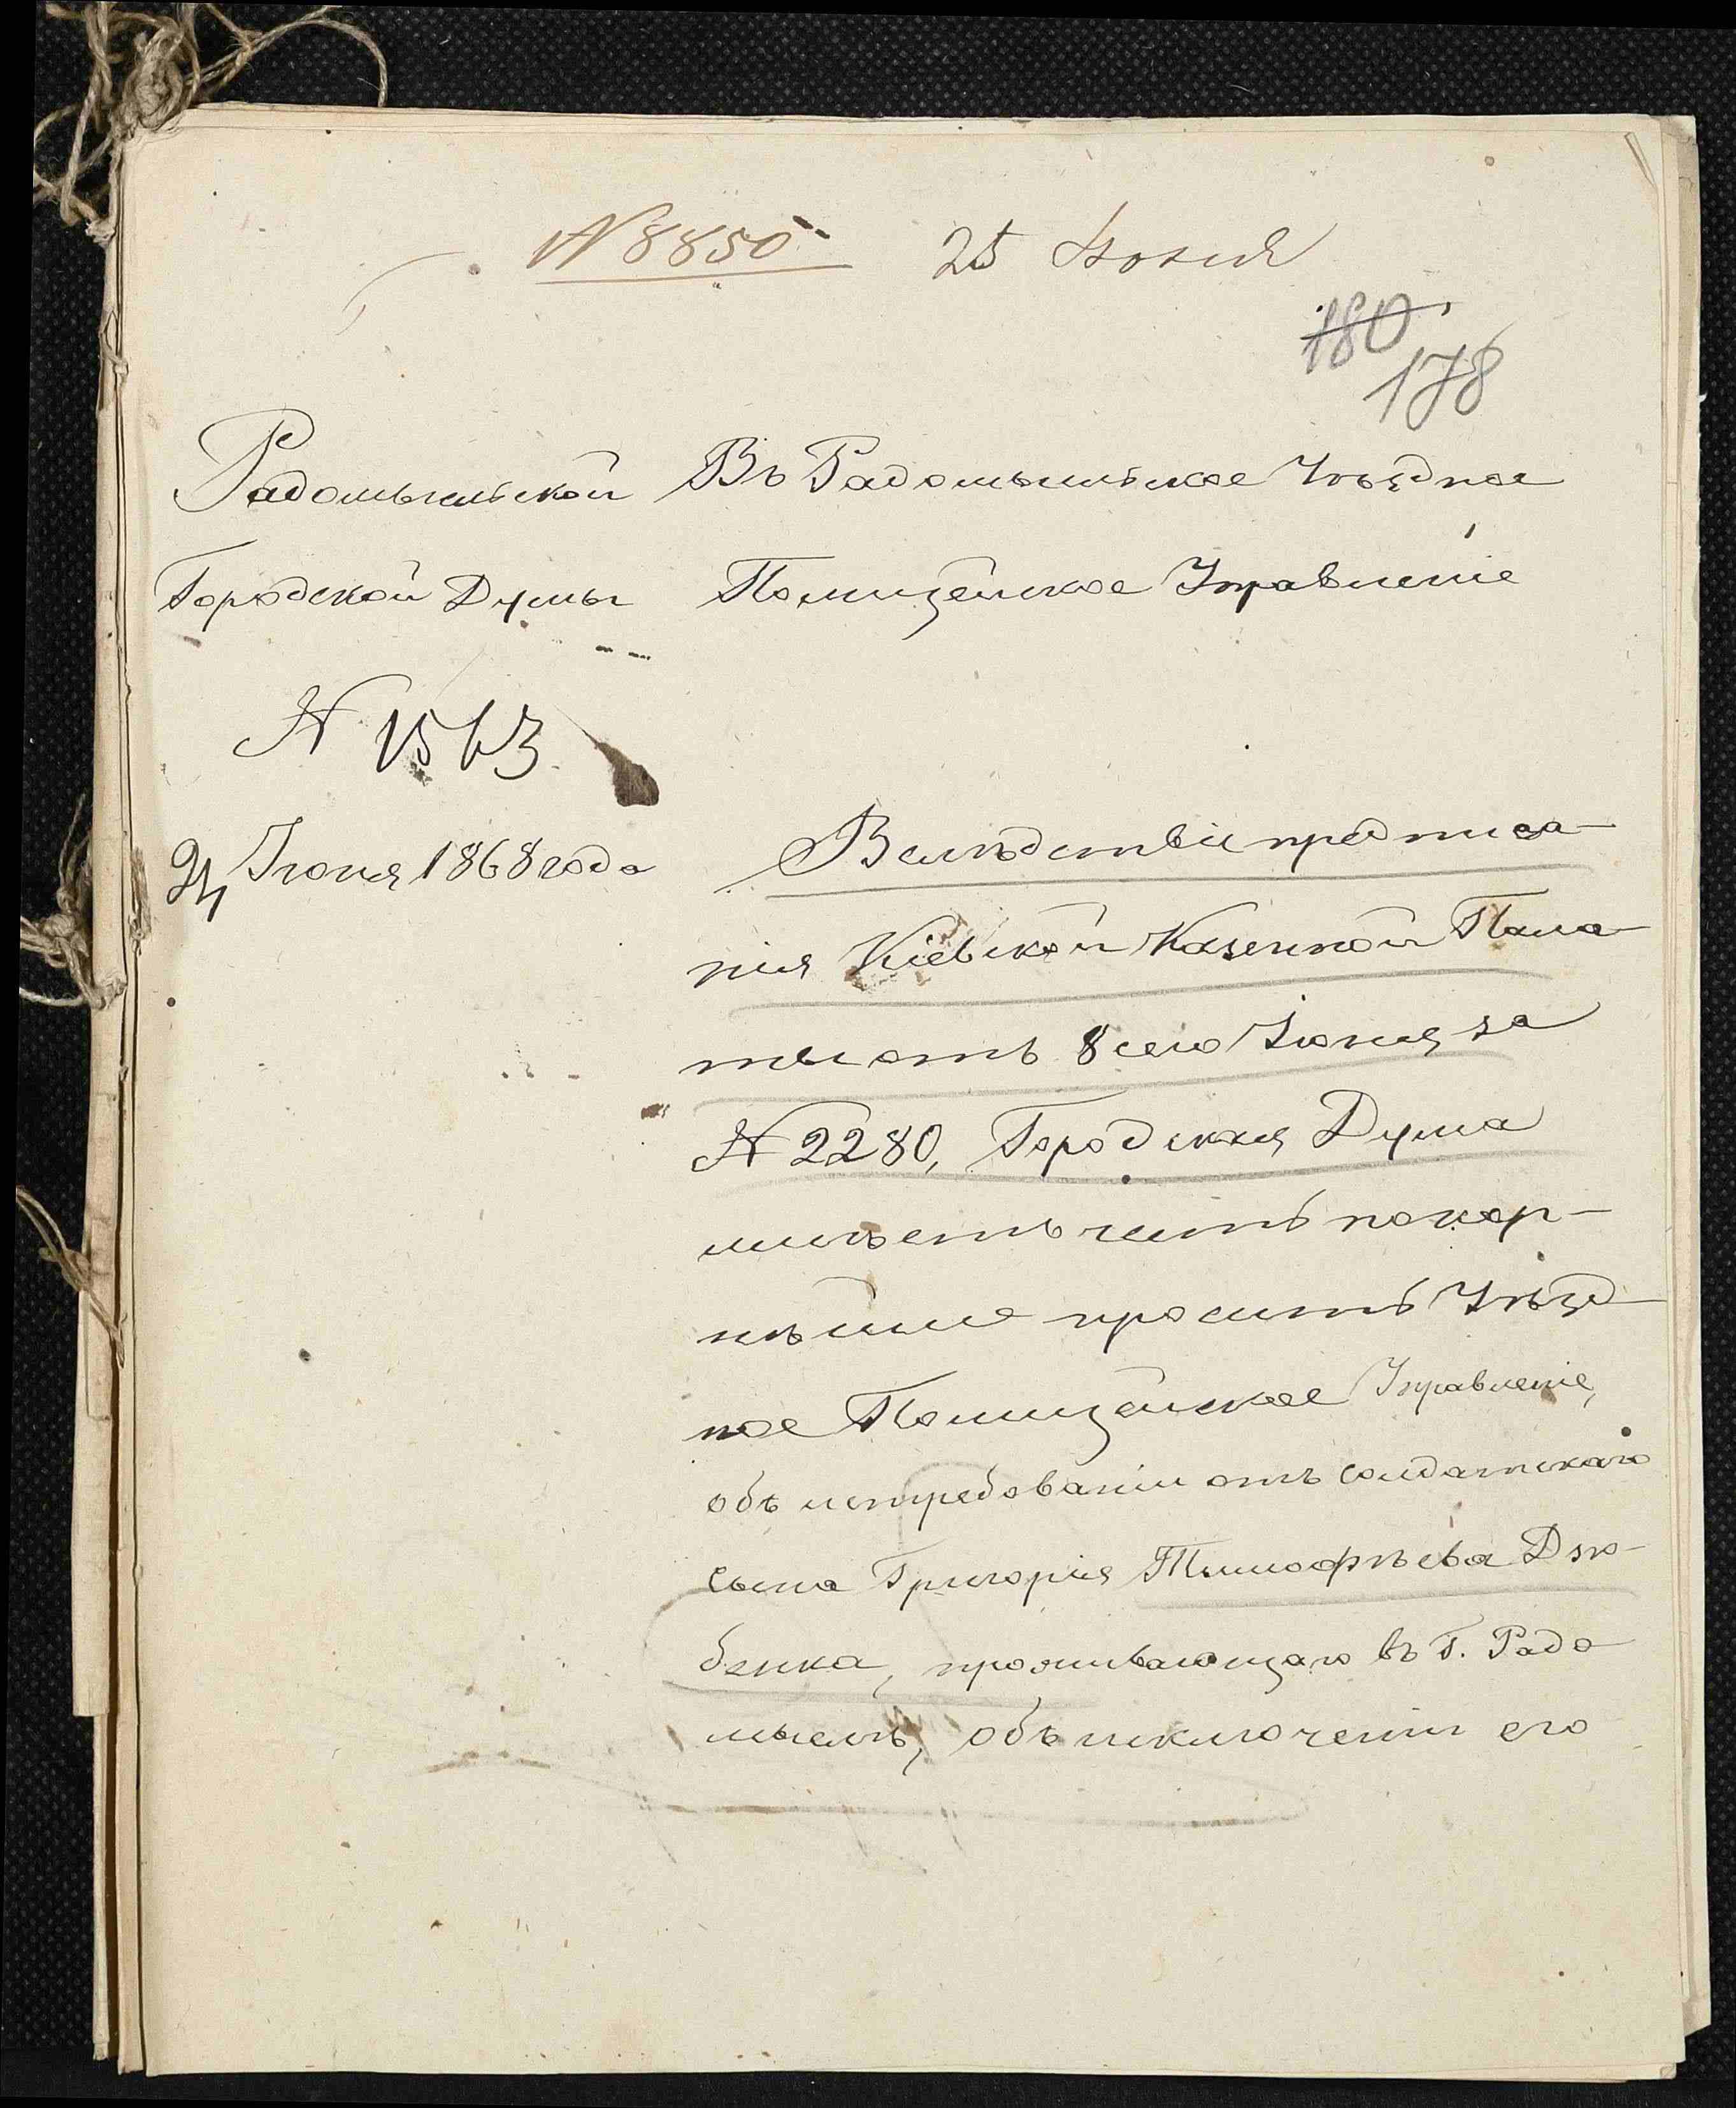 N 8850 25 Июня
180
178
Радомысльской
Городской Думы
N 1563
24 Іюня 1868 года
Въ Радомысльское Уѣздное
Полицейское Управленіе
Вслѣдствіе предписа-
нія Кіевской Казенной Пала-
ты отъ 8 сего Іюня за
N 2280, Городская Дума
имѣетъ честь покор-
нѣйше просить Уѣзд-
ное Полицейское Управленіе,
объ истребованіи отъ солдатскаго
сына Григорія Тимофѣева Дзю-
бенка, проживающаго въ Г. Радо-
мыслѣ, объ исключеніи его